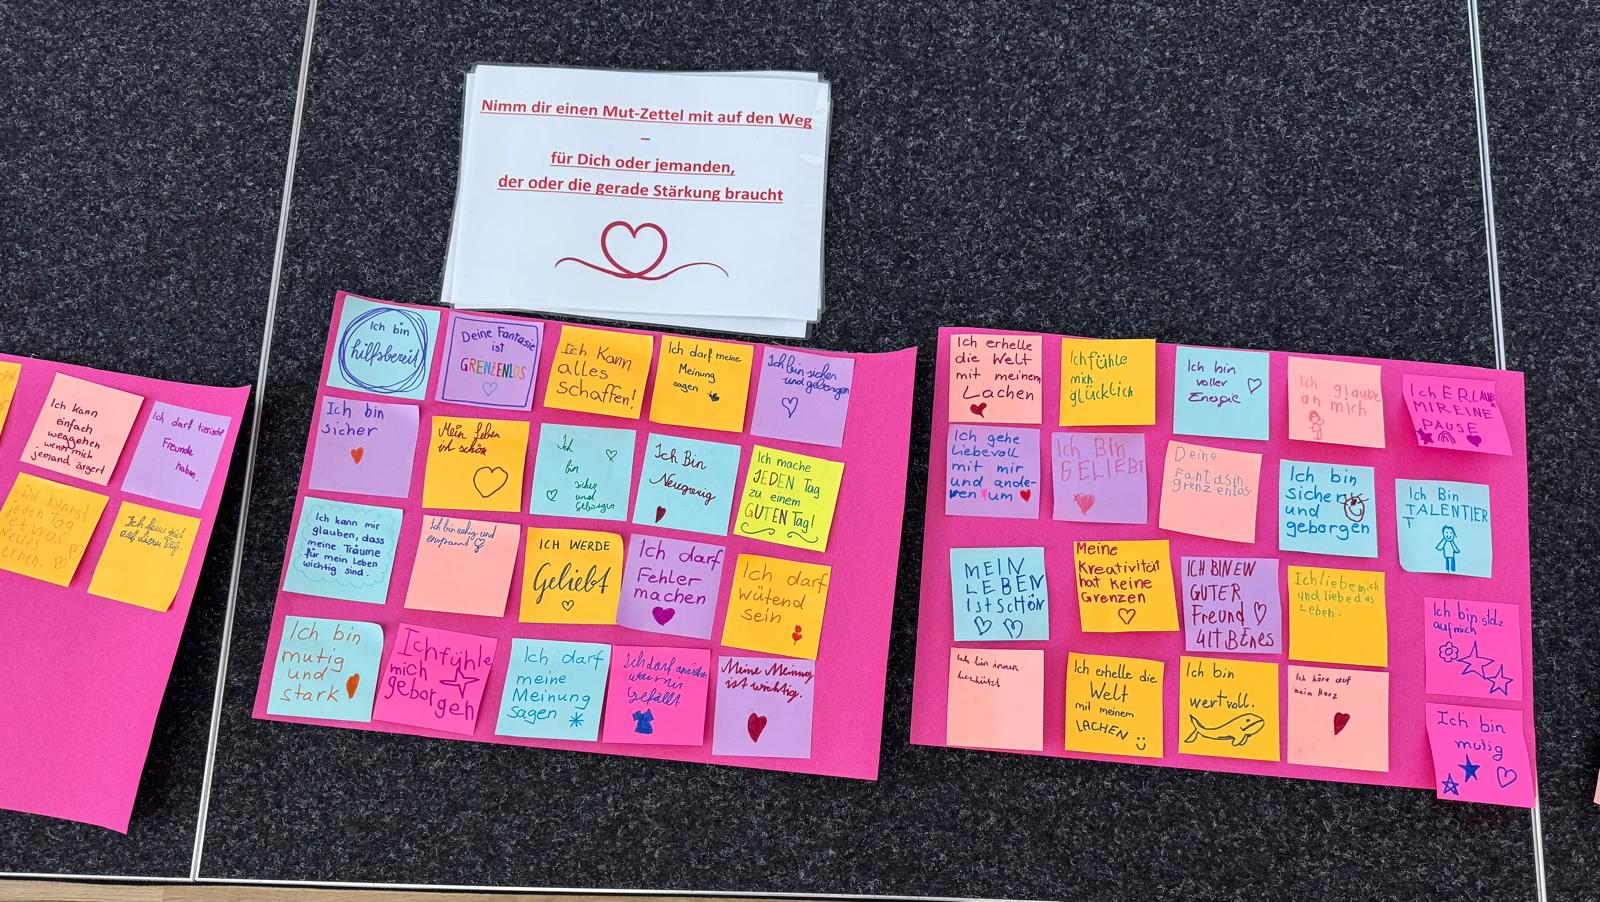 Nimm dir einen Mut-Zettel mit auf den Weg
–
für Dich oder jemanden,
der oder die gerade Stärkung braucht
Ich kann
einfach
weggehen
wenn mich
jemand ärgert
Ich darf tierische
Freunde
haben.
Du kannst
jeden Tag
etwas
neues
Ich bin
hilfsbereit
Deine Fantasie
ist
GRENZENLOS
Ich kann
alles
schaffen!
Ich darf meine
Meinung
sagen
Ich bin sicher
und geborgen
Ich bin
sicher
Mein Leben
ist schön
Ich
bin
sicher
und
geborgen
Ich Bin
Neugierig
Ich mache
JEDEN Tag
zu einem
GUTEN Tag!
Ich kann mir
glauben, dass
meine Träume
für mein Leben
wichtig sind.
Ich bin ruhig und
entspannt
ICH WERDE
Geliebt
Ich darf
Fehler
machen
Ich darf
wütend
sein
Ich bin
mutig
und
stark
Ich fühle
mich
geborgen
Ich darf
meine
Meinung
sagen
Ich darf anziehen
was mir
gefällt
Meine Meinung
ist wichtig.
Ich erhelle
die Welt
mit meinem
Lachen
Ich fühle
mich
glücklich
Ich bin
voller
Energie
Ich glaube
an mich
Ich ERLAUBE
MIR EINE
PAUSE
Ich gehe
Liebevoll
mit mir
und ande-
ren um
Ich Bin
GELIEBT
Deine
Fantasin
grenzenlos
Ich bin
sicher
und
geborgen
Ich Bin
TALENTIER
T
MEIN
LEBEN
ISt SCHÖN
Meine
Kreativität
hat keine
Grenzen
ICH BIN EIN
GUTER
Freund
Ich liebe mich
und liebe das
Leben.
Ich bin stolz
auf mich
Ich bin immer
beschützt
Ich erhelle die
Welt
mit meinem
LACHEN
Ich bin
wertvoll.
Ich höre auf
mein Herz
Ich bin
mutig